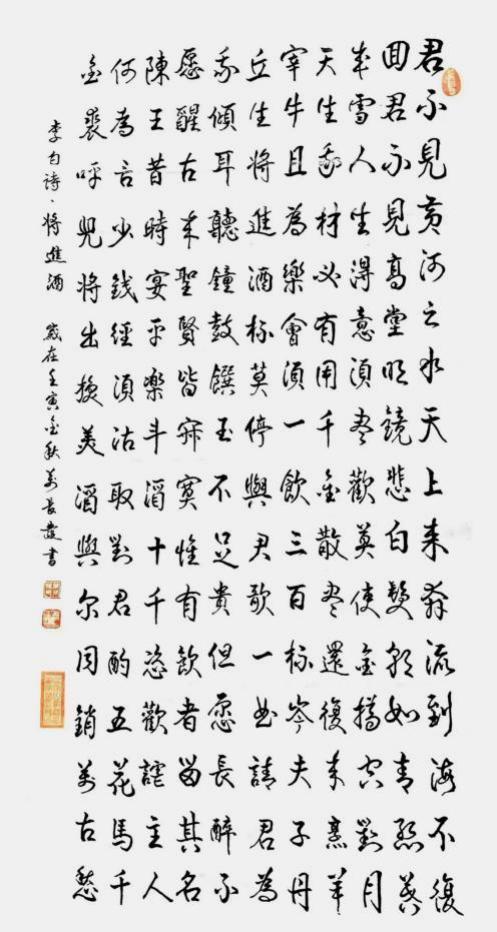 君不見黄河之水天上来奔流到海不復
回君不見高堂明鏡悲白髮朝如青丝暮
成雪人生得意須尽歡莫使金樽空對月
天生我材必有用千金散尽還復来烹羊
宰牛且為樂會須一飲三百杯岑夫子丹
丘生將進酒杯莫停與君歌一曲請君為
我傾耳聽鐘鼓饌玉不足貴但愿長醉不
愿醒古来聖賢皆寂寞惟有飲者留其名
陳王昔時宴平樂斗酒十千恣歡謔主人
何為言少錢經須沽取對君酌五花馬千
金裘呼兒将出換美酒與尔同銷萬古愁
李白诗、将進酒 歲在壬寅金秋萬長發書